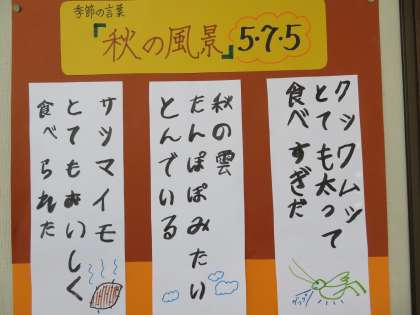 季節の言葉
「秋の風景」5・7・5
クツワムシ
とても太って
食べすぎだ
秋の雲
たんぽぽみたい
とんでいる
サツマイモ
とてもおいしく
食べられた